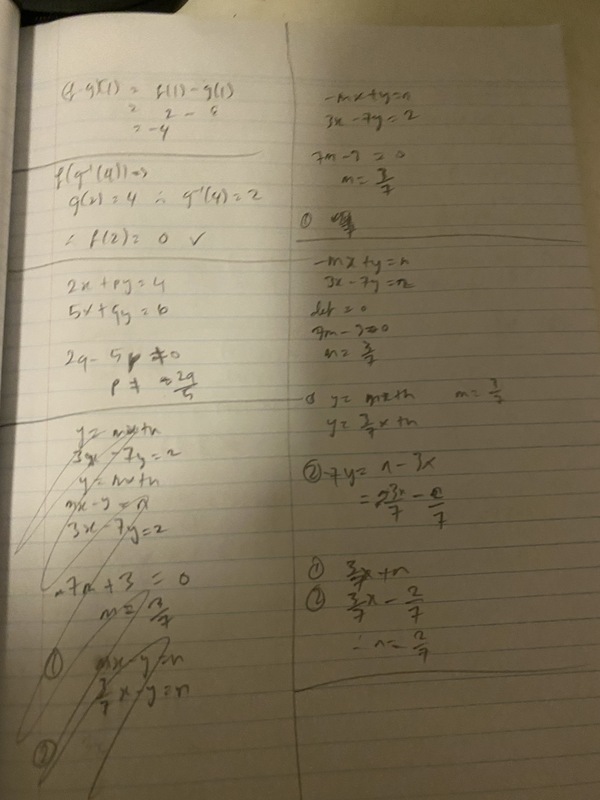 (f-g)(1) = f(1) - g(1)
= 2 -
= -4
f(g⁻¹(4)) =
g(2) = 4 ∴ g⁻¹(4) = 2
∴ f(2) = 0 ✓
2x + py = 4
5x + qy = 6
2q - 5p ≠ 0
p ≠ 2q/5
y = mx + n
3x - 7y = 2
y = mx + n
mx - y = n
3x - 7y = 2
-7m + 3 = 0
m = 3/7
① mx - y = n
3/7 x - y = n
②
-mx + y = n
3x - 7y = 2
7m - 3 = 0
m = 3/7
①
-mx + y = n
3x - 7y = 2
det = 0
7m - 3 = 0
m = 3/7
① y = mx + n m = 3/7
y = 3/7 x + n
② -7y = n - 3x
= 3x/7 - 2/7
① 3/7 x + n
② 3/7 x - 2/7
∴ n = 2/7